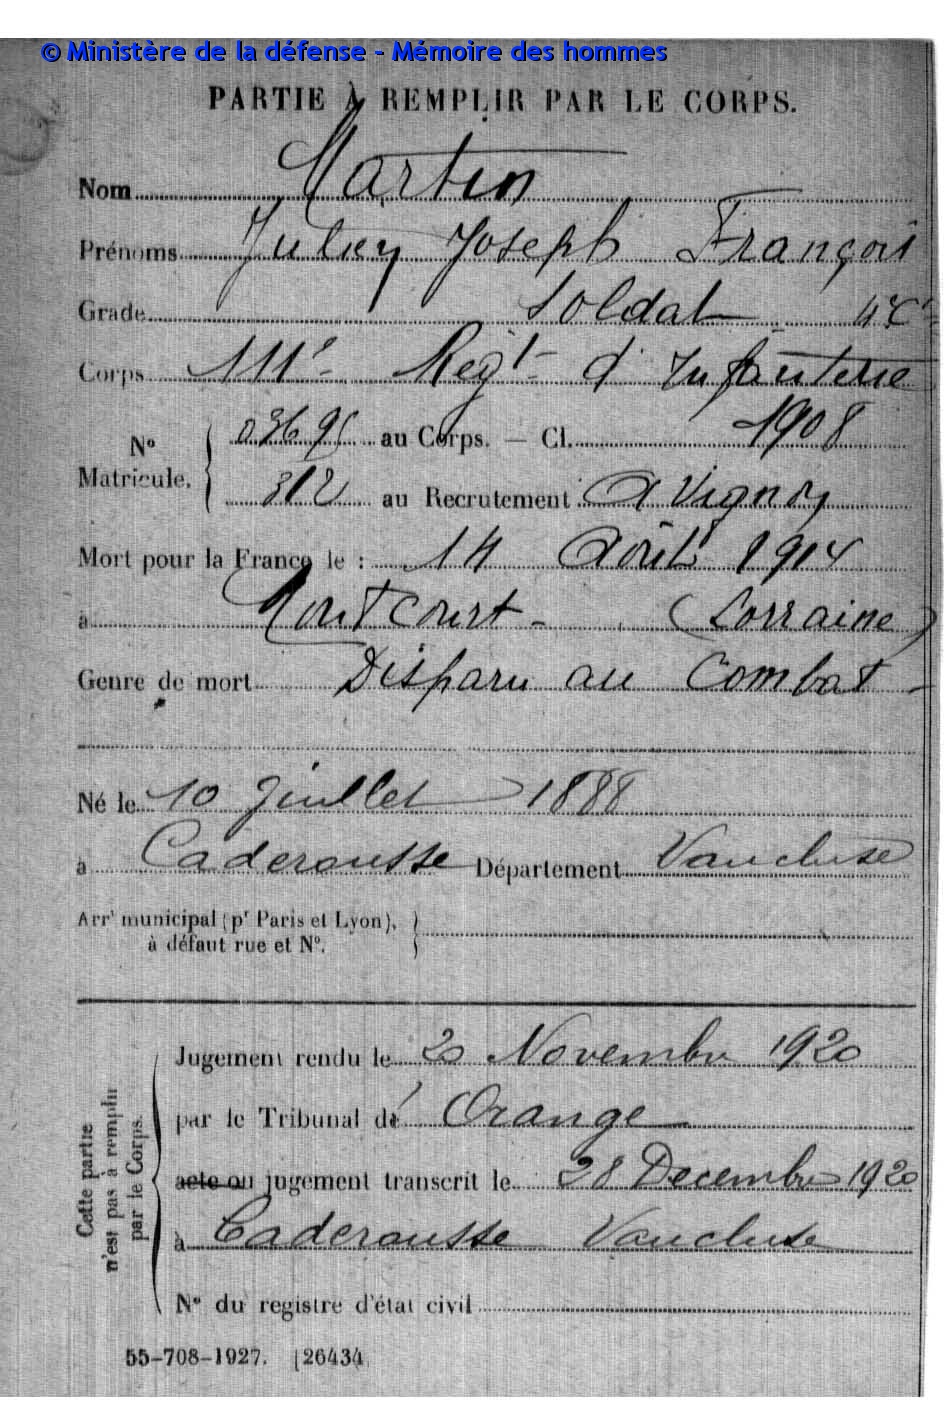 © Ministère de la défense - Mémoire des hommes
PARTIE À REMPLIR PAR LE CORPS.
Nom Martin
Prénoms Julien Joseph François
Grade Soldat
Corps 111e Regt d'Infanterie
No Matricule. 03695 au Corps. — Cl. 1908
312 au Recrutement Avignon
Mort pour la France le : 14 Août 1914
à Montcourt - (Lorraine)
Genre de mort Disparu au Combat -
Né le 10 Juillet 1888
à Caderousse Département Vaucluse
Arrt municipal (pr Paris et Lyon),
à défaut rue et No.
Cette partie n'est pas à remplir par le Corps.
Jugement rendu le 20 Novembre 1920
par le Tribunal de Orange
acte ou jugement transcrit le 28 Decembre 1920
à Caderousse Vaucluse
No du registre d'état civil
55-708-1927. [26434